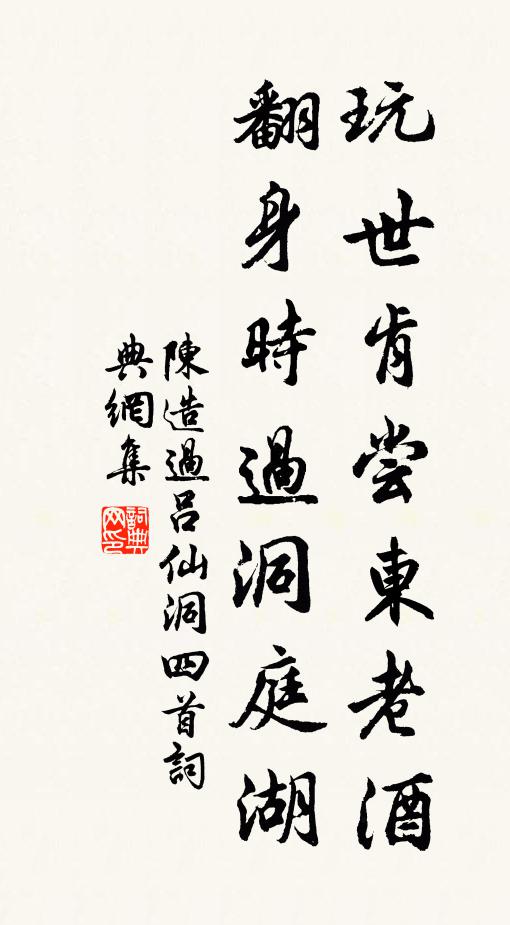 玩世肯尝東老酒
翻身時過洞庭湖
陳造過吕仙洞四首詞
典網集
詞典
网印